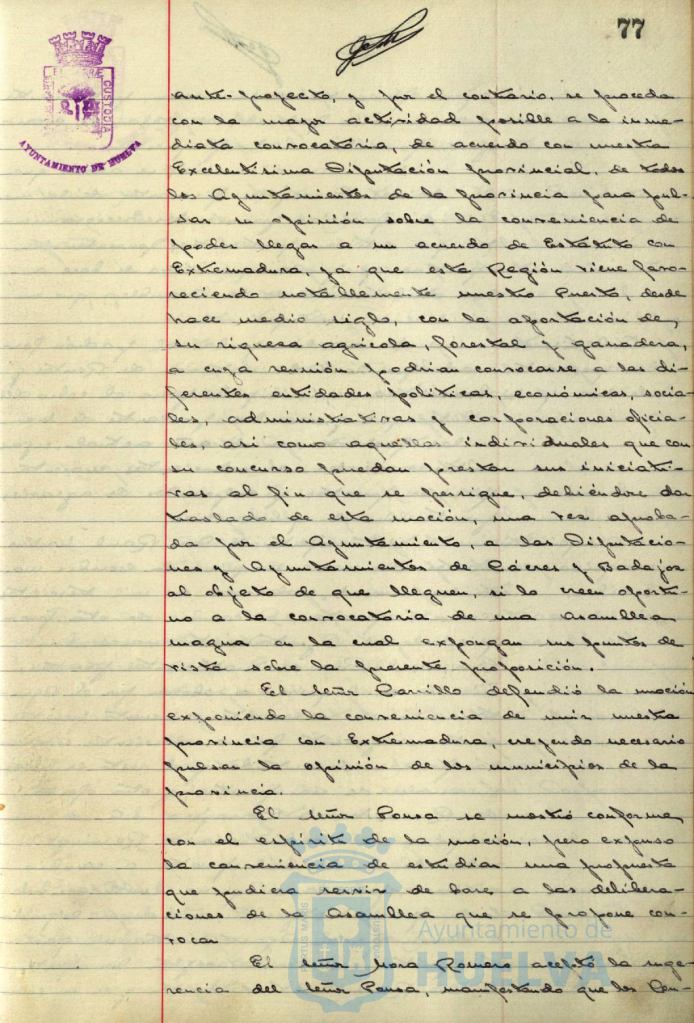 77
PORTUS MARIS ET TERRAE CUSTODIA
AYUNTAMIENTO DE HUELVA
ante-proyecto, y por el contrario, se proceda
con la mayor actividad posible a la inme-
diata convocatoria, de acuerdo con nuestra
Excelentísima Diputación provincial, de todos
los Ayuntamientos de la provincia para pul-
sar su opinión sobre la conveniencia de
poder llegar a un acuerdo de Estatuto con
Extremadura, ya que esta Región viene favo-
reciendo notablemente nuestro Puerto, desde
hace medio siglo, con la aportación de
su riquesa agrícola, forestal y ganadera,
a cuya reunión podrían convocarse a las di-
ferentes entidades políticas, económicas, socia-
les, administrativas y corporaciones oficia-
les, así como aquellas individuales que con
su concurso puedan prestar sus iniciati-
vas al fin que se persigue, debiéndose dar
traslado de esta moción, una vez aproba-
da por el Ayuntamiento, a las Diputacio-
nes y Ayuntamientos de Cáceres y Badajoz
al objeto de que lleguen, si lo creen oportu-
no a la convocatoria de una asamblea
magna en la cual expongan sus puntos de
vista sobre la presente proposición.
El señor Carrillo defendió la moción
exponiendo la conveniencia de unir nuestra
provincia con Extremadura, creyendo necesario
pulsar la opinión de los municipios de la
provincia.
El señor Ponsa se mostró conforme
con el espíritu de la moción, pero expuso
la conveniencia de estudiar una propuesta
que pudiera servir de base a las delibera-
ciones de la Asamblea que se propone con-
vocar
El señor Mora Romero aceptó la suge-
rencia del señor Ponsa, manifestando que los Con-
Ayuntamiento de
HUELVA